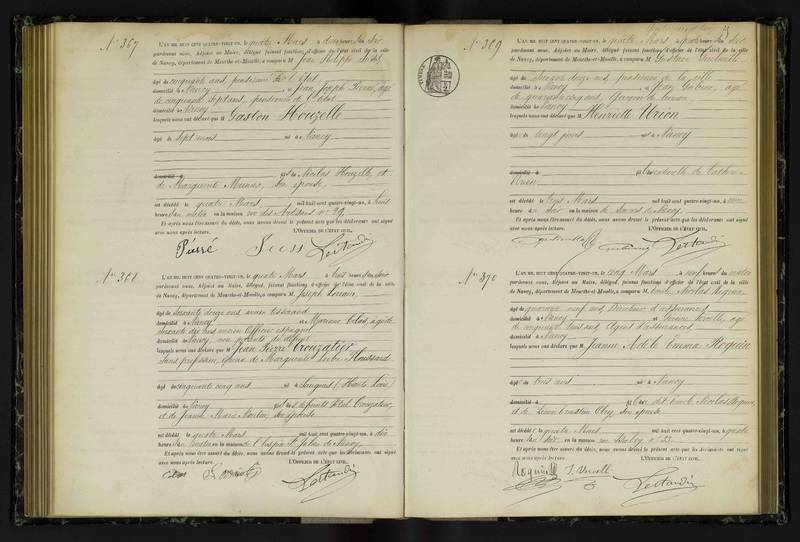 No 367
L'AN MIL HUIT CENT QUATRE-VINGT-UN, le quatre Mars à deux heures du soir
pardevant nous, Adjoint au Maire, délégué faisant fonctions d'officier de l'état civil de la ville
de Nancy, département de Meurthe-et-Moselle, a comparu M. Jean Philippe
âgé de cinquante ans, pensionné de l'État
domicilié à Nancy et Jean Joseph Pierré, âgé
de cinquante sept ans, pensionné de l'État
domicilié à Nancy
lesquels nous ont déclaré que M Gaston Houzelle
âgé de sept mois né à Nancy
domicilié à fils de Nicolas Houzelle et
de Marguerite son épouse
est décédé le quatre Mars mil huit cent quatre-vingt-un, à huit
heures du matin en la maison rue des Artisans no 29
Et après nous être assuré du décès, nous avons dressé le présent acte que les déclarants ont signé
avec nous après lecture. L'OFFICIER DE L'ÉTAT CIVIL,
Pierré
No 368
L'AN MIL HUIT CENT QUATRE-VINGT-UN, le quatre Mars à trois heures du soir
pardevant nous, Adjoint au Maire, délégué, faisant fonctions d'officier de l'état civil de la ville
de Nancy, département de Meurthe-et-Moselle, a comparu M. Joseph
âgé de soixante douze ans, ancien tisserand
domicilié à Nancy et Mariano âgé de
soixante dix ans ancien officier espagnol
domicilié à Nancy, non parents du défunt
lesquels nous ont déclaré que M Jean Pierre Crouzatier
sans profession, époux de Marguerite Houssard
âgé de cinquante cinq ans né à Saugues (Haute Loire)
domicilié à Nancy fils de défunts Vital Crouzatier
et de Jeanne Marie son épouse
est décédé le quatre Mars mil huit cent quatre-vingt-un, à dix
heures du matin en la maison de l'hospice St Julien de Nancy
Et après nous être assuré du décès, nous avons dressé le présent acte que les déclarants ont signé
avec nous après lecture. L'OFFICIER DE L'ÉTAT CIVIL,
No 369
L'AN MIL HUIT CENT QUATRE-VINGT-UN, le quatre Mars à quatre heures du soir
pardevant nous, Adjoint au Maire, délégué faisant fonctions d'officier de l'état civil de la ville
de Nancy, département de Meurthe-et-Moselle, a comparu M. Gustave
âgé de soixante douze ans, pensionné de la ville
domicilié à Nancy et Jean âgé
de quarante cinq ans, garçon de bureau
domicilié à Nancy
lesquels nous ont déclaré que M Henriette Urion
âgé de vingt jours né à Nancy
domicilié à fille naturelle de Catherine
Urion
est décédé le trois Mars mil huit cent quatre-vingt-un, à onze
heures du soir en la maison de secours de Nancy
Et après nous être assuré du décès, nous avons dressé le présent acte que les déclarants ont signé
avec nous après lecture. L'OFFICIER DE L'ÉTAT CIVIL,
No 370
L'AN MIL HUIT CENT QUATRE-VINGT-UN, le cinq Mars à neuf heures du matin
pardevant nous, Adjoint au Maire, délégué, faisant fonctions d'officier de l'état civil de la ville
de Nancy, département de Meurthe-et-Moselle, a comparu M. Emile Nicolas Roquin
âgé de quarante neuf ans, Directeur d'assurances
domicilié à Nancy et âgé
de cinquante trois ans, Agent d'assurances
domicilié à Nancy
lesquels nous ont déclaré que M Jeanne Adèle Emma Roquin
âgé de trois ans né à Nancy
domicilié à fille dudit Emile Nicolas Roquin
et de son épouse
est décédé le quatre Mars mil huit cent quatre-vingt-un, à quatre
heures du soir en la maison rue
Et après nous être assuré du décès, nous avons dressé le présent acte que les déclarants ont signé
avec nous après lecture. L'OFFICIER DE L'ÉTAT CIVIL,
Roquin